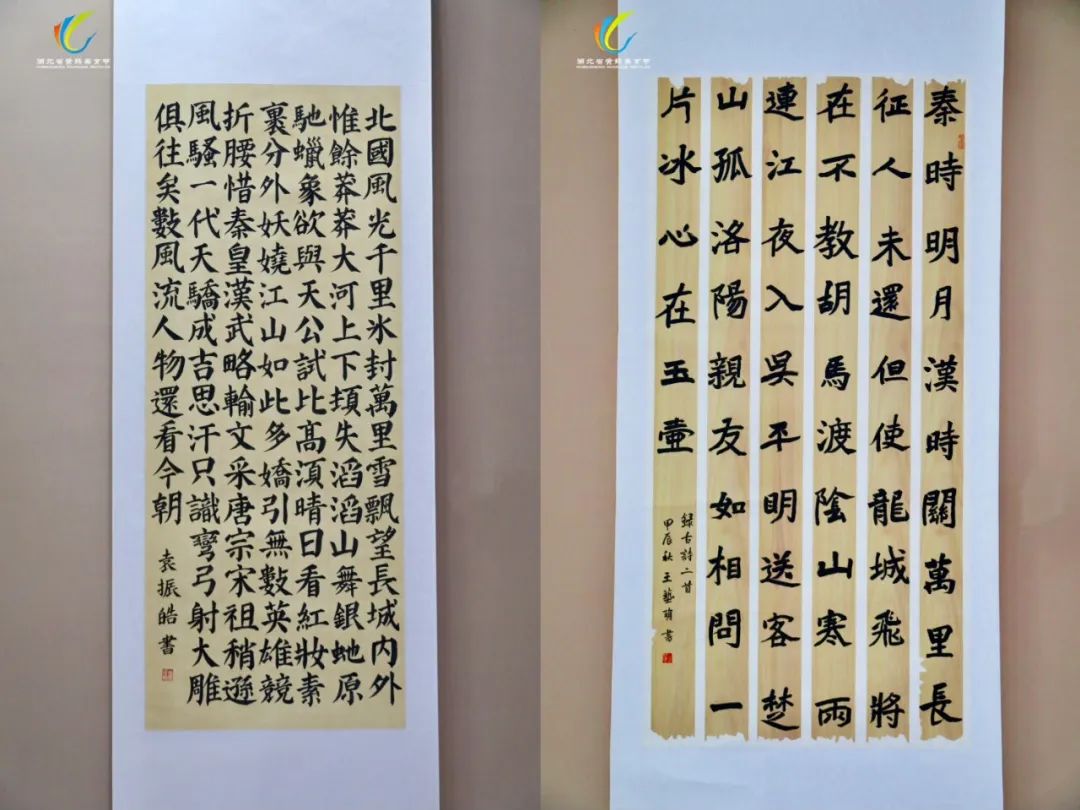 北國風光千里冰封萬里雪飄望長城內外
惟餘莽莽大河上下頓失滔滔山舞銀虵原
馳蠟象欲與天公試比高須晴日看紅妝素
裹分外妖嬈江山如此多嬌引無數英雄競
折腰惜秦皇漢武略輸文采唐宗宋祖稍遜
風騷一代天驕成吉思汗只識彎弓射大雕
俱往矣數風流人物還看今朝
袁振皓書
秦時明月漢時關萬里長
征人未還但使龍城飛將
在不教胡馬渡陰山寒雨
連江夜入吳平明送客楚
山孤洛陽親友如相問一
片冰心在玉壺
録古詩二首
甲辰秋王藝萌書